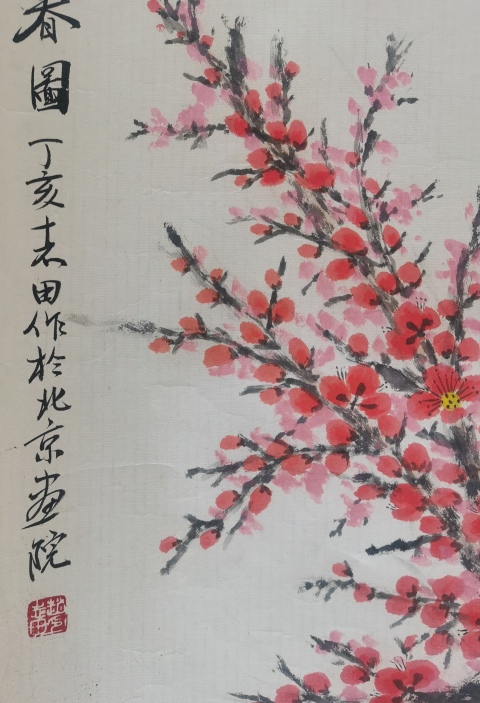 春圖丁亥志田作於北京畫院